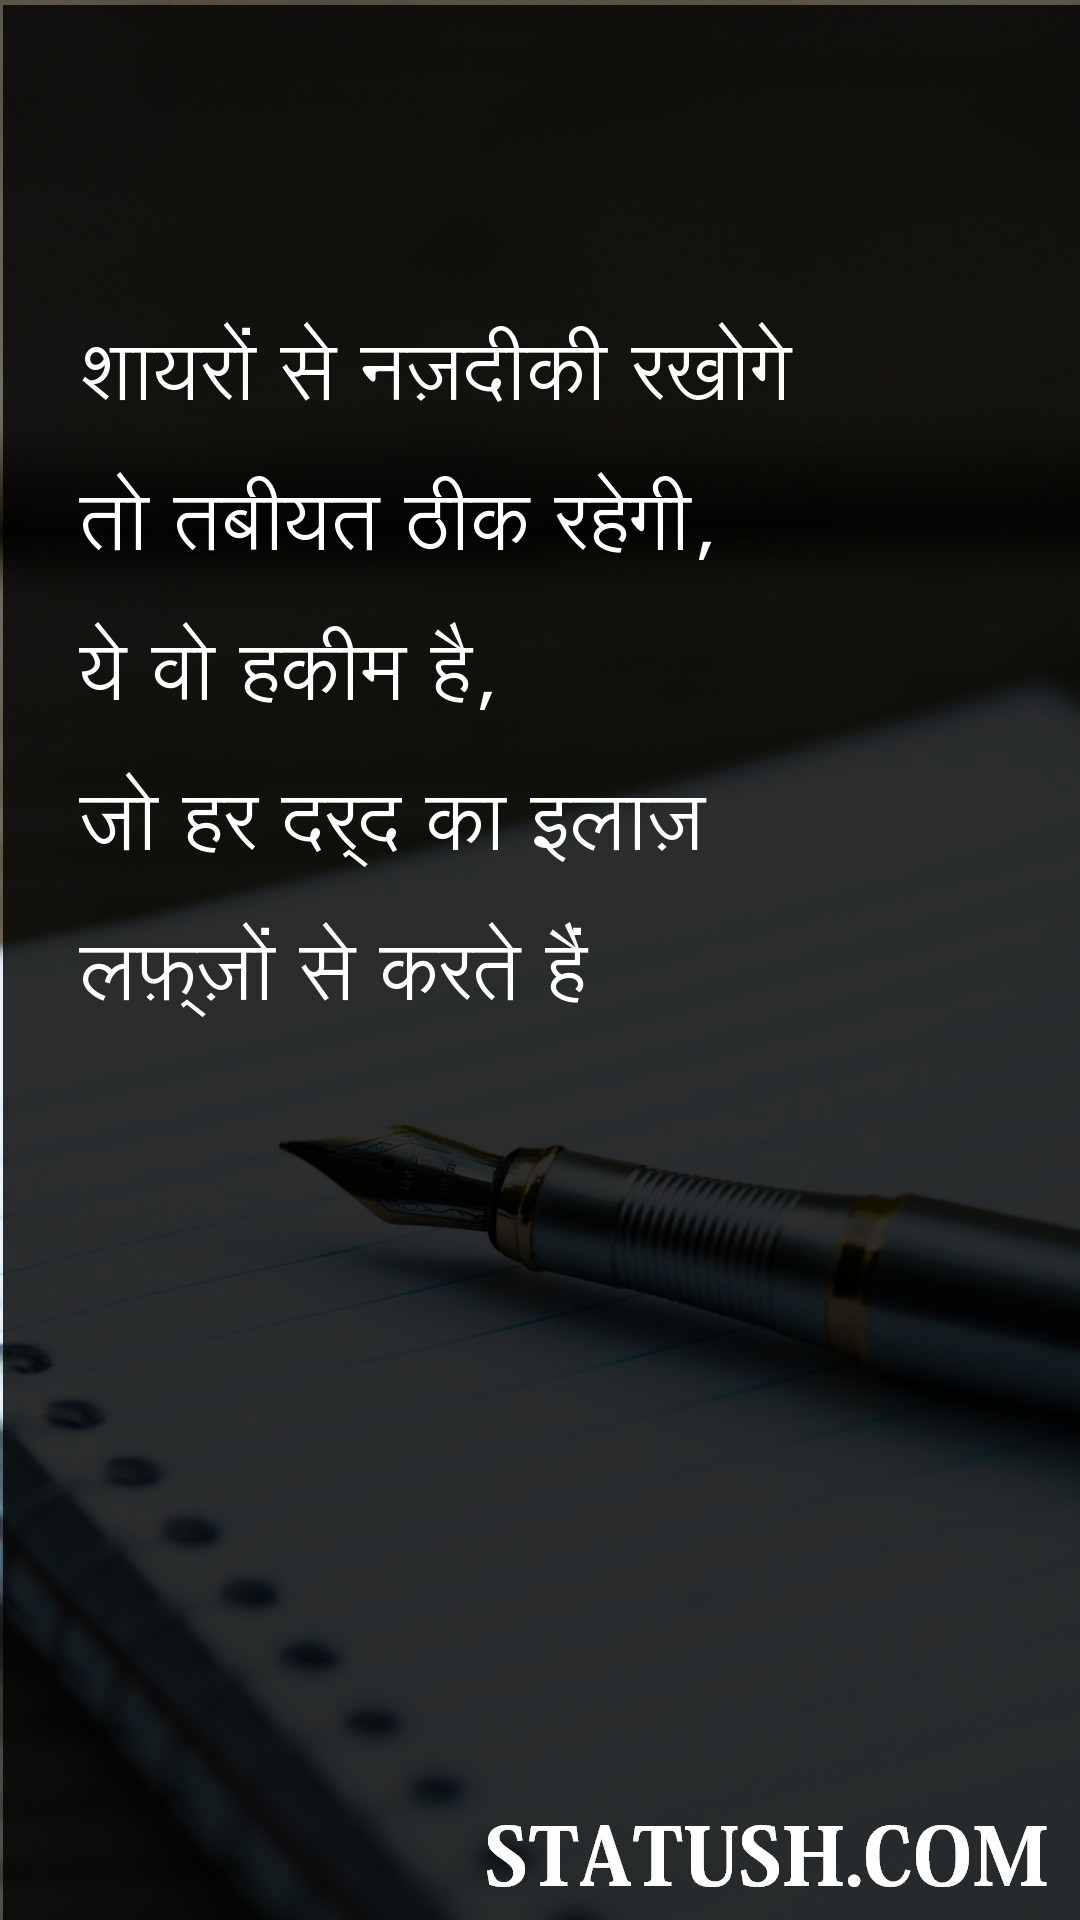 शायरों से नज़दीकी रखोगे
तो तबीयत ठीक रहेगी,
ये वो हकीम है,
जो हर दर्द का इलाज़
लफ़्ज़ों से करते हैं
STATUSH.COM